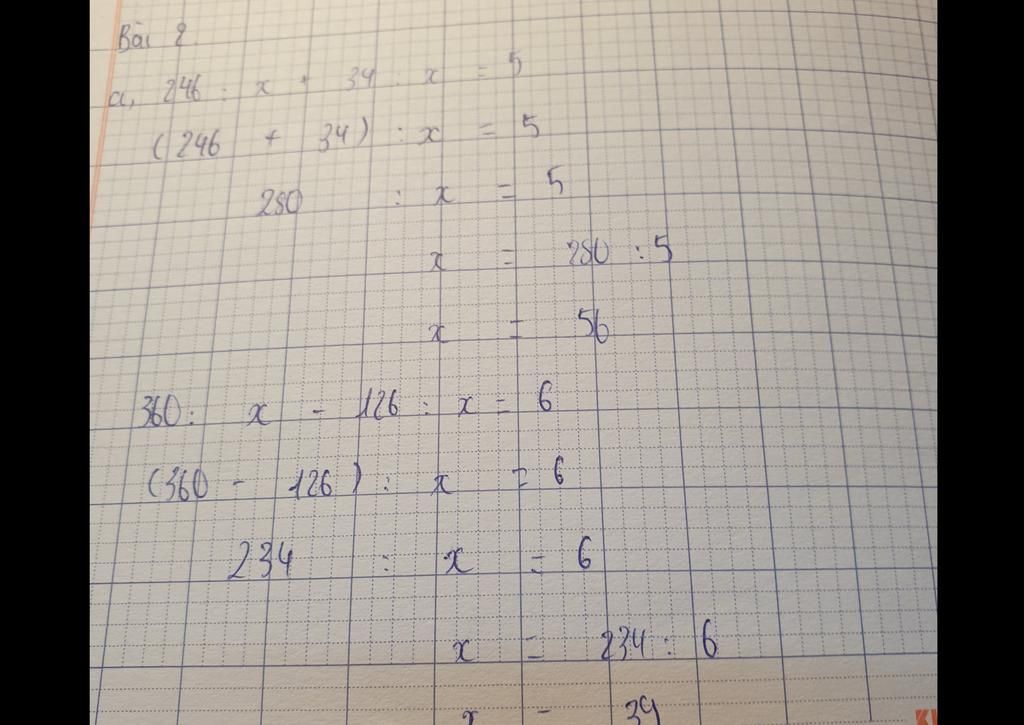 Bài 2
a, 246 : x + 34 : x = 5
(246 + 34) : x = 5
280 : x = 5
x = 280 : 5
x = 56
360 : x - 126 : x = 6
(360 - 126) : x = 6
234 : x = 6
x = 234 : 6
x = 39